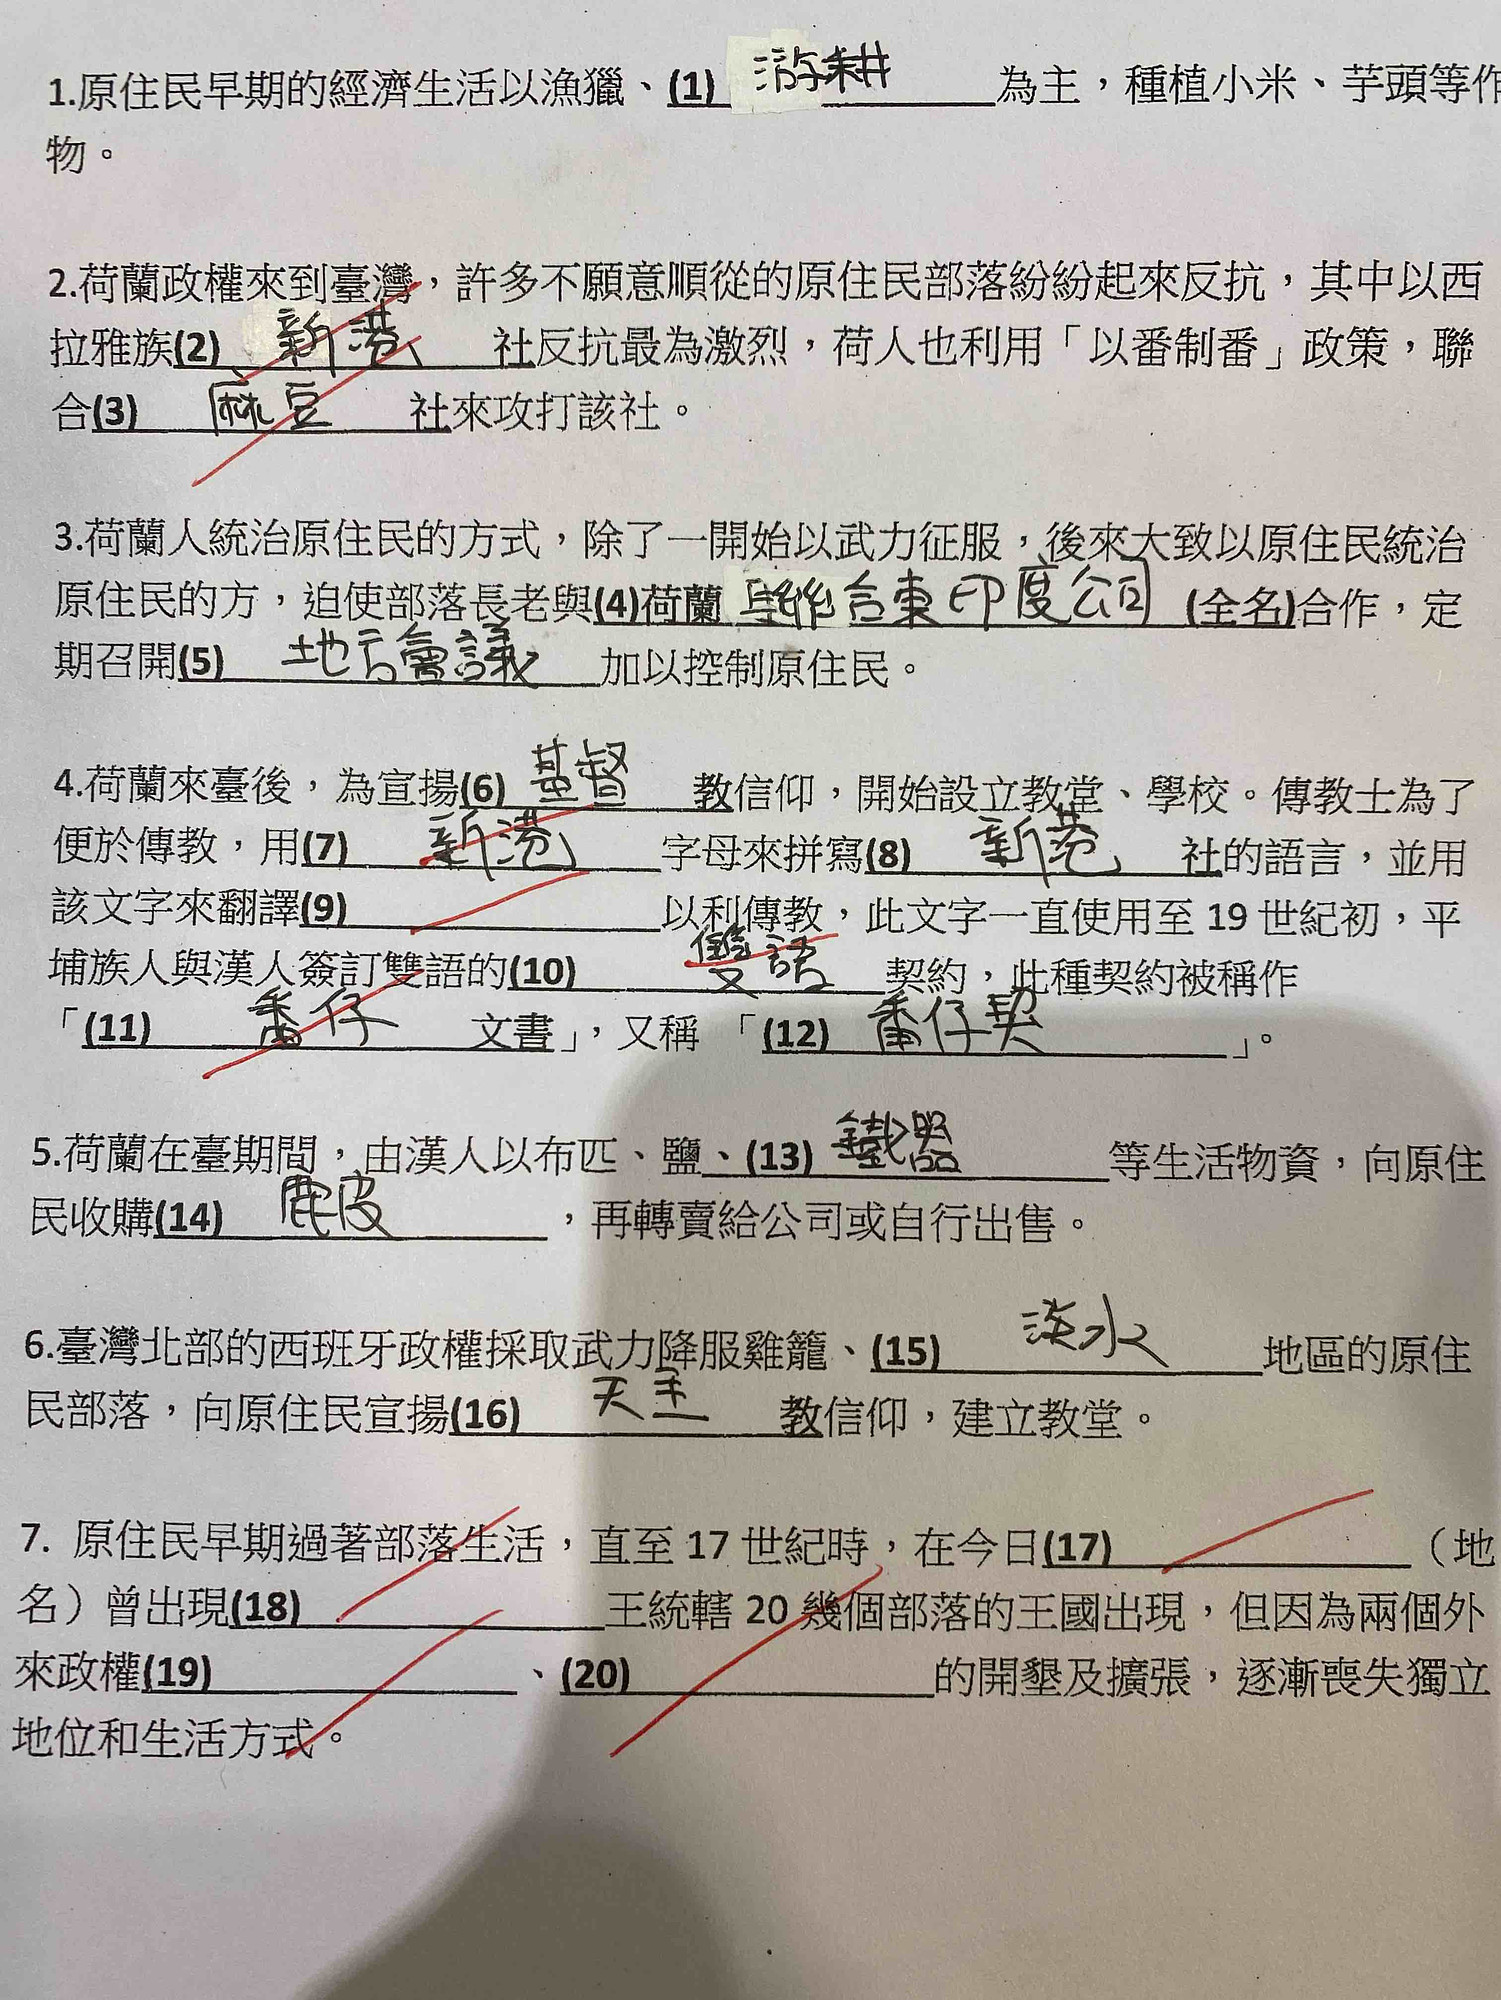 1.原住民早期的經濟生活以漁獵、(1) 游耕 為主，種植小米、芋頭等作
物。
2.荷蘭政權來到臺灣，許多不願意順從的原住民部落紛紛起來反抗，其中以西
拉雅族(2) 新港 社反抗最為激烈，荷人也利用「以番制番」政策，聯
合(3) 麻豆 社來攻打該社。
3.荷蘭人統治原住民的方式，除了一開始以武力征服，後來大致以原住民統治
原住民的方，迫使部落長老與(4)荷蘭 聯合東印度公司 (全名)合作，定
期召開(5) 地方會議 加以控制原住民。
4.荷蘭來臺後，為宣揚(6) 基督 教信仰，開始設立教堂、學校。傳教士為了
便於傳教，用(7) 新港 字母來拼寫(8) 新港 社的語言，並用
該文字來翻譯(9) 以利傳教，此文字一直使用至 19 世紀初，平
埔族人與漢人簽訂雙語的(10) 雙語 契約，此種契約被稱作
「(11) 番仔 文書」，又稱 「(12) 番仔契 」。
5.荷蘭在臺期間，由漢人以布匹、鹽、(13) 鐵器 等生活物資，向原住
民收購(14) 鹿皮 ，再轉賣給公司或自行出售。
6.臺灣北部的西班牙政權採取武力降服雞籠、(15) 淡水 地區的原住
民部落，向原住民宣揚(16) 天主 教信仰，建立教堂。
7. 原住民早期過著部落生活，直至 17 世紀時，在今日(17) （地
名）曾出現(18) 王統轄 20 幾個部落的王國出現，但因為兩個外
來政權(19) 、(20) 的開墾及擴張，逐漸喪失獨立
地位和生活方式。